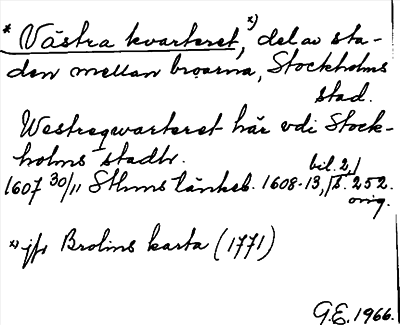 * Västra kvarteret, *) del av sta-
den mellan broarna, Stockholms
stad.
Westreqwarteret här vdi Stock-
holms stadtr.
1607 30/11 Sthms tänkeb. 1608-13, bil. 2, s. 252.
orig.
*) jfr Brolins karta (1771)
G.E. 1966.